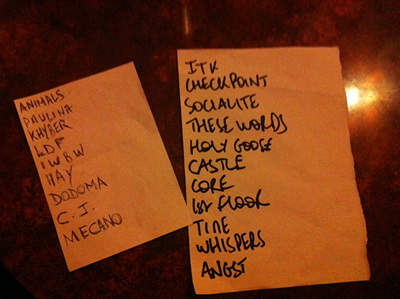 ANIMALS
PAULINA
KHYBER
LDF
IWBW
HAY
DODOMA
C.J.
MECANO
ITK
CHECKPOINT
SOCIALITE
THESE WORDS
HOLY GOOSE
CASTLE
CORE
1st FLOOR
TIME
WHISPERS
ANGST